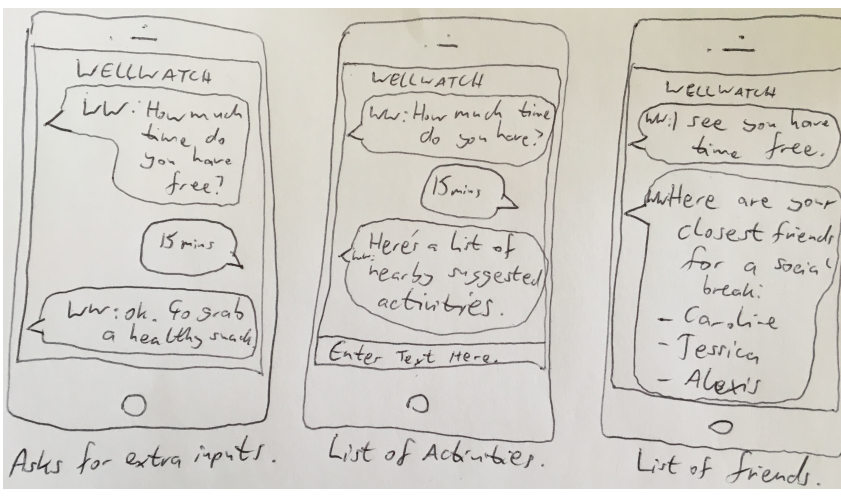 WELLWATCH
WW: How much
time do
you have
free?
15 mins
WW: ok. Go grab
a healthy snack
Asks for extra inputs.
WELLWATCH
WW: How much time
do you have?
15 mins
WW: Here's a list of
nearby suggested
activities.
Enter Text Here.
List of Activities.
WELLWATCH
WW: I see you have
time free.
WW Here are your
closest friends
for a social
break:
- Caroline
- Jessica
- Alexis
List of friends.